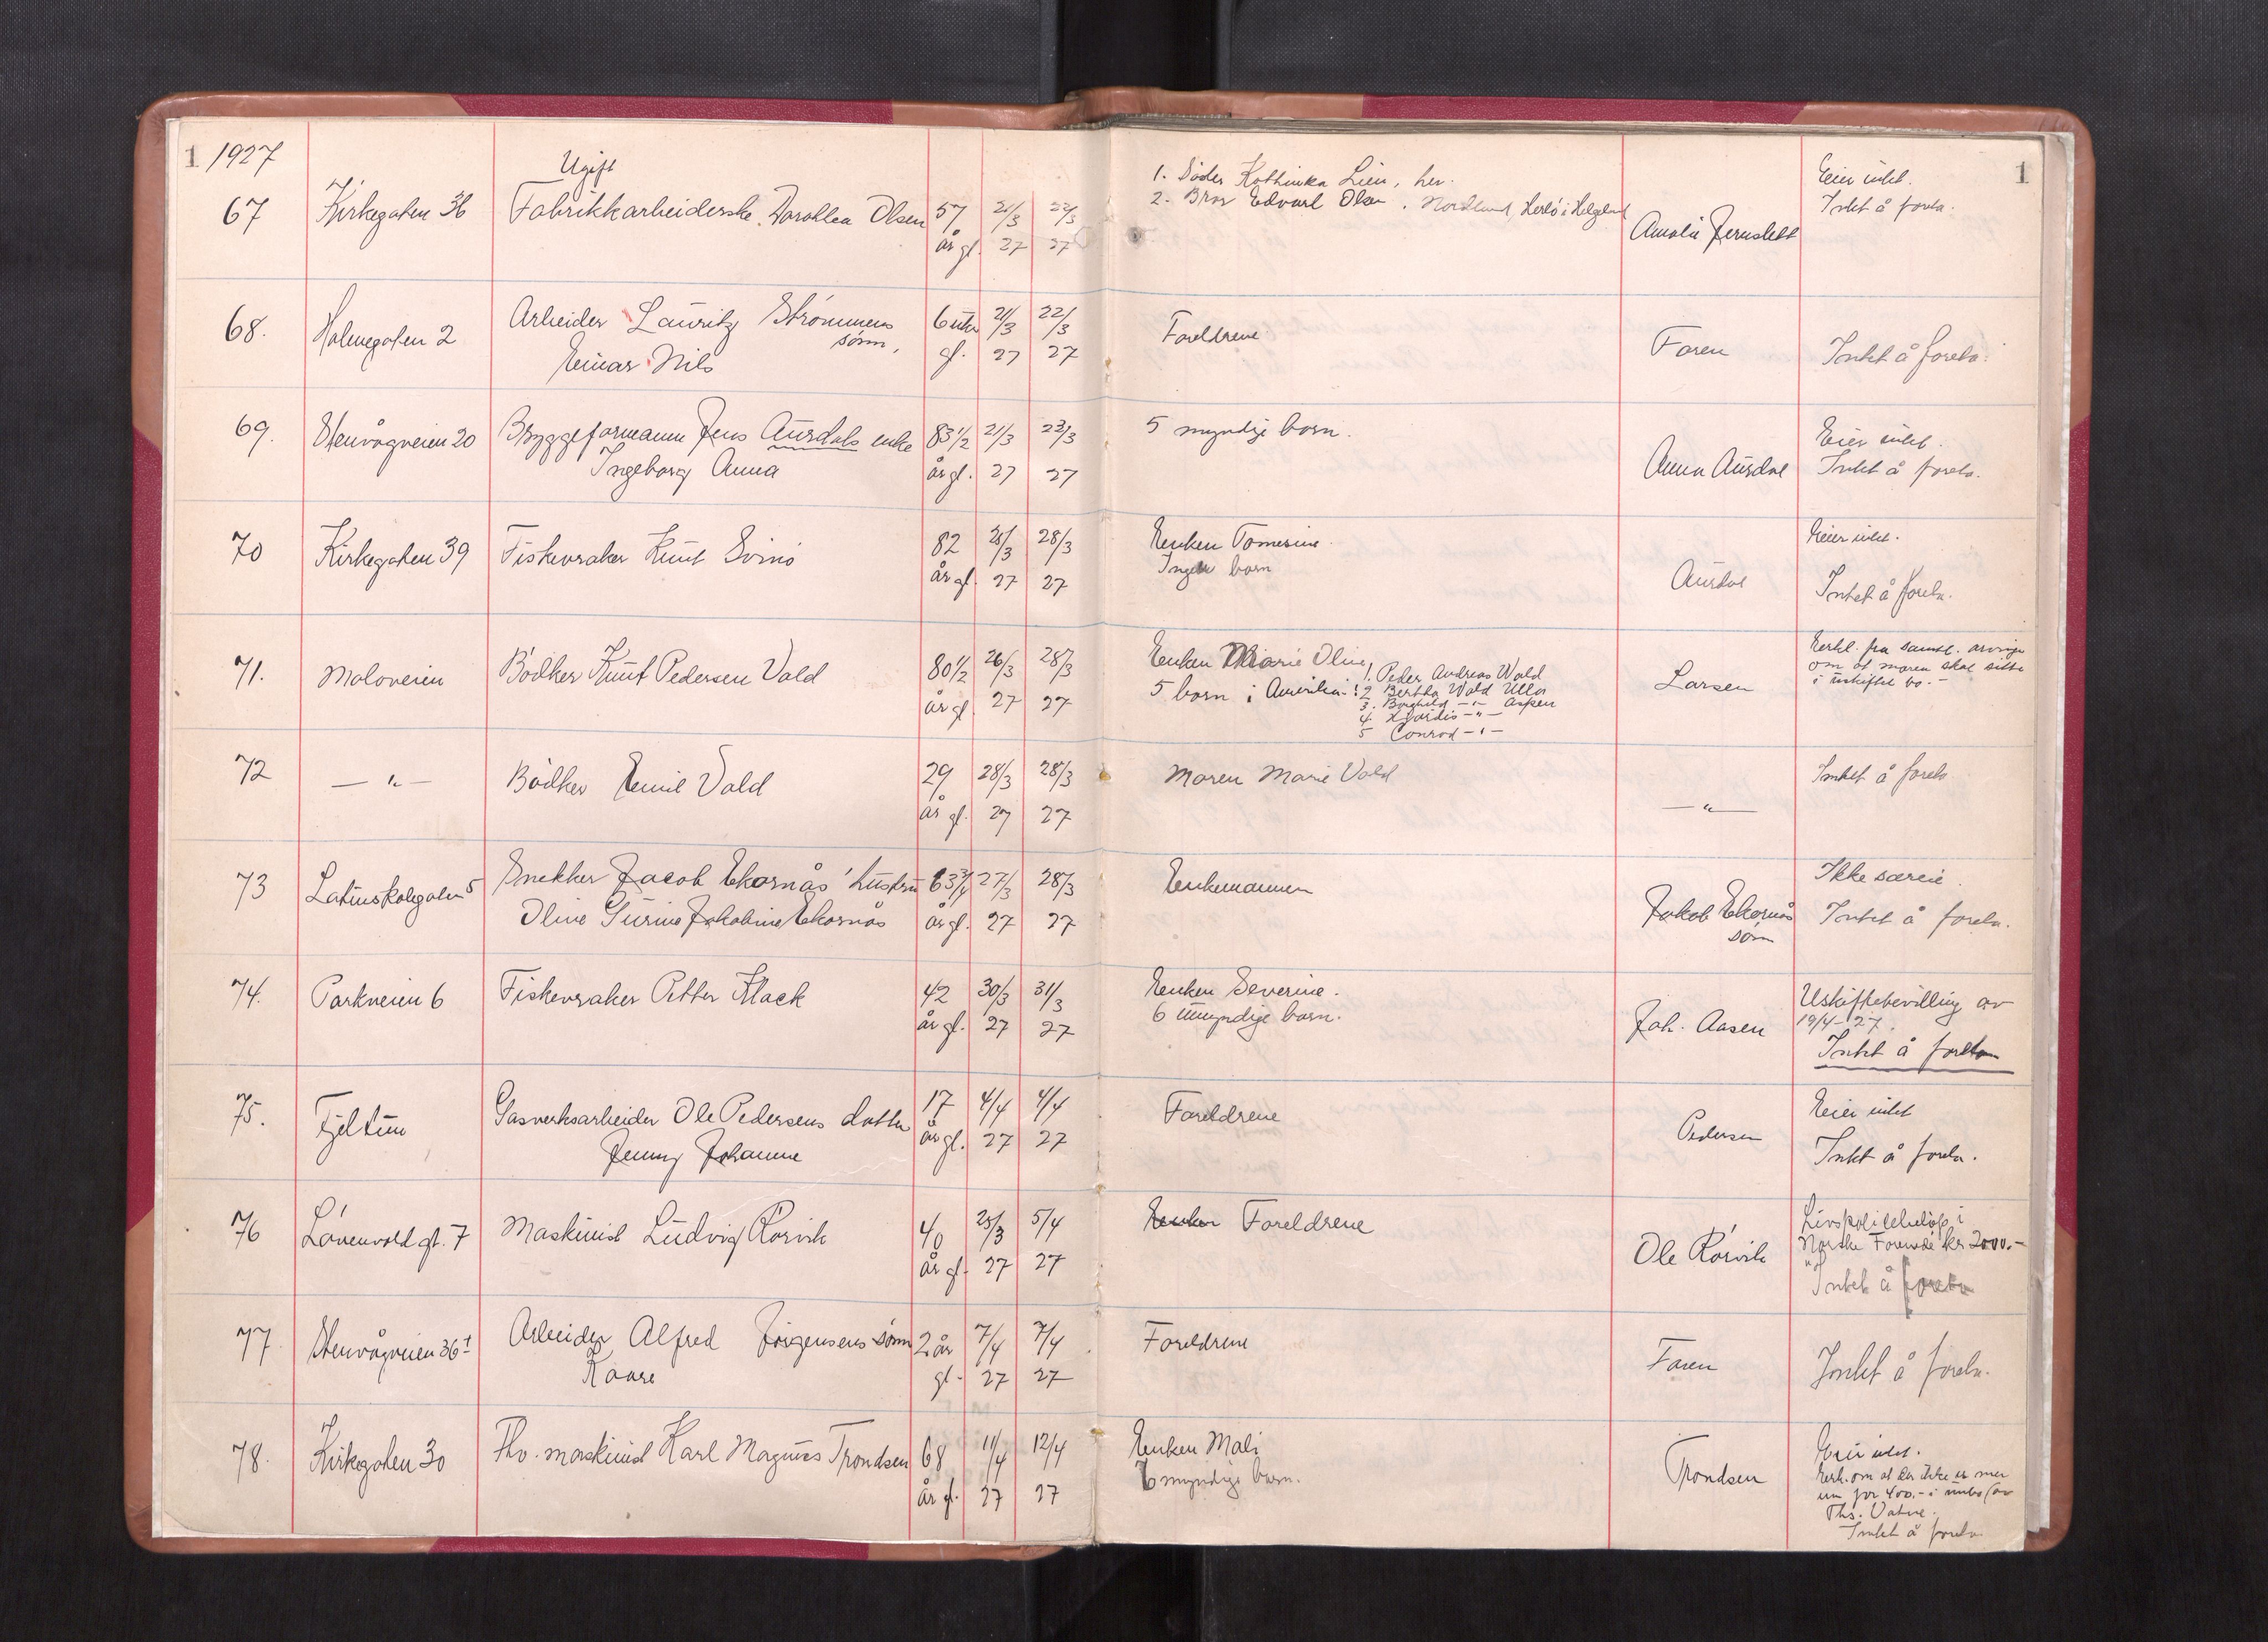 1 1927
1
67
Kirkegaten 36
Ugift
Fabrikkarbeiderske Dorothea Olsen
57 år gl.
21/3 27
22/3 27
1. Söster Kathinka Lien, her.
2. Bror Edvart Olsen, Nordland, Herlö i Helgeland
Amalie Jernslett
Eier intet.
Intet å foreta.
68.
Holmegaten 2
Arbeider Lauritz Strömmens sönn,
Einar Nils
6 uker gl.
21/3 27
22/3 27
Foreldrene
Faren
Intet å foreta.
69.
Stenvågveien 20
Bryggeformann Jens Aursdals enke
Ingeborg Anna
83 1/2 år gl.
21/3 27
23/3 27
5 myndige barn.
Anna Aursdal
Eier intet.
Intet å foreta.
70
Kirkegaten 39
Fiskevraker Knut Svinö
82 år gl.
28/3 27
Enken Tomesine.
Ingen barn
Aursdal
Eier intet.
Intet å foreta.
71.
Moloveien
Bödker Knut Pedersen Vald
80 1/2 år gl.
26/3 27
28/3 27
Enken Marie Oline
5 barn i Amerika: 1. Peder Andreas Wald
2 Bertha Wald Ulla
3. Borghild -"- Aspen
4. Hjördis -"-
5 Conrad -"-
Larsen
Erkl. fra samtl. arvinger
om at moren skal sitte
i uskiftet bo. -
72
— " —
Bödker Emil Vald
29 år gl.
28/3 27
28/3 27
Maren Marie Vald
— " —
Intet å foreta
73
Latinskolegaten 5
Snekker Jacob Ekornås' hustru
Oline Gurine Jakobine Ekornås
63 3/4 år gl.
27/3 27
28/3 27
Enkemannen
Jakob Ekornås
sönn
Ikke særeie.
Intet å foreta.
74.
Parkveien 6
Fiskevraker Petter Flack
42 år gl.
30/3 27
31/3 27
Enken Severine.
6 umyndige barn.
Joh. Aasen
Uskiftebevilling av
19/4-27.
Intet å foreta
75.
Fjeltun
Gasverksarbeider Ole Pedersens datter
Jenny Johanne
17 år gl.
4/4 27
4/4 27
Foreldrene
Pedersen
Eier intet
Intet å foreta.
76
Lövenvold gt. 7
Maskinist Ludvig Rörvik
40 år gl.
25/3 27
5/4 27
Enken Foreldrene
Ole Rörvik
Livspolisebelöp i
Norske Forenede kr 2000.-
Intet å foreta
77
Stenvågveien 36
Arbeider Alfred Jörgensens sönn
Kaare
2 år gl.
7/4 27
7/4 27
Foreldrene
Faren
Intet å foreta.
78.
Kirkegaten 30
Fhv. maskinist Karl Magnus Trondsen
68 år gl.
11/4 27
12/4 27
Enken Mali
6 myndige barn.
Trondsen
Eier intet.
Erkl. om at der ikke er mer
enn for 400.- i innbo (av
Ths. Vatne.
Intet å foreta